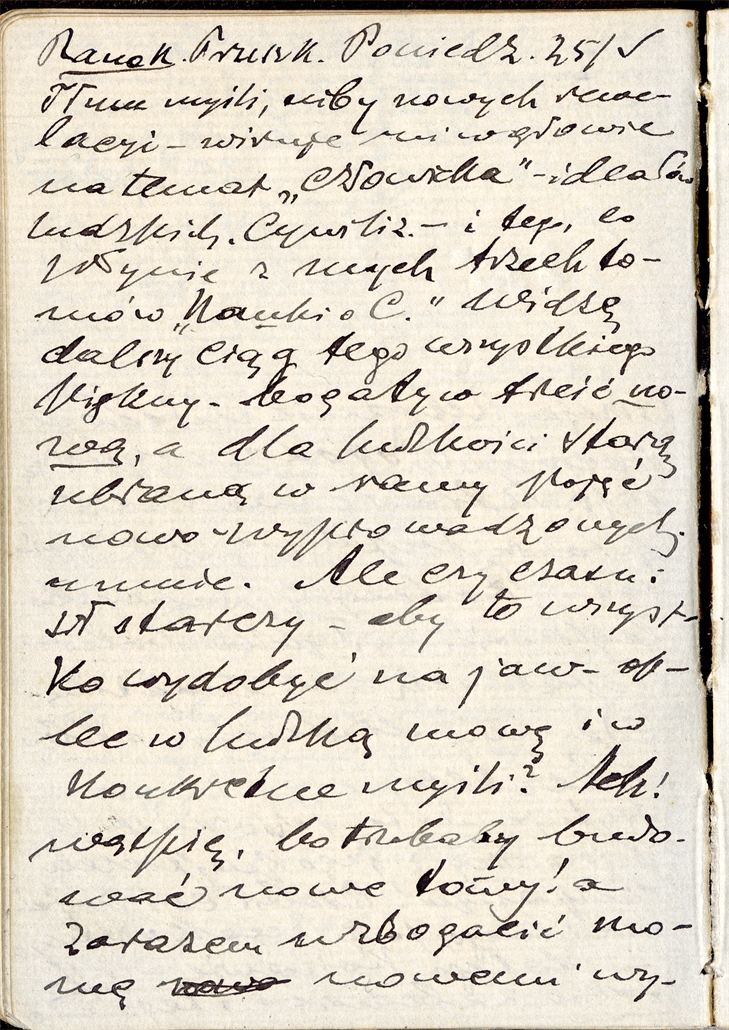 Ranek. Truszk. Poniedz. 25/V
Tłum myśli, niby nowych rewe-
lacyi – wiruje mi w głowie
na temat „Człowieka” – ideałów
ludzkich. Cywiliz. – i tego, co
płynie z mych trzech to-
mów „Nauki o C.” Widzę
dalszy ciąg tego wszystkiego
piękny – bogaty w treść no-
wą, a dla ludzkości starą
ubraną w ramy pojęć
nowo-wyprowadzonych
umnie. Ale czy czasu i
sił starczy – aby to wszyst-
ko wydobyć na jaw – ob-
lec w ludzką mowę i w
konkretne myśli? Ach!
wątpię, bo trzebaby budo-
wać nowe tomy! a
zarazem wzbogacić mo-
wę nowemi wy-